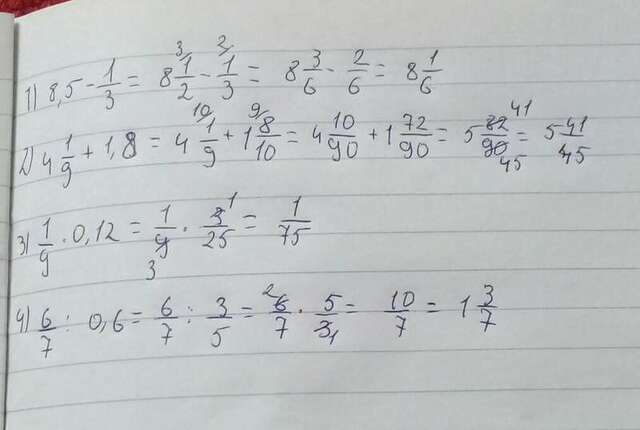 1) 8,5 - 1/3 = 8 1/2 - 1/3 = 8 3/6 - 2/6 = 8 1/6
2) 4 1/9 + 1,8 = 4 1/9 + 1 8/10 = 4 10/90 + 1 72/90 = 5 82/90 = 5 41/45
3) 1/9 · 0,12 = 1/9 · 3/25 = 1/75
4) 6/7 : 0,6 = 6/7 : 3/5 = 6/7 · 5/3 = 10/7 = 1 3/7